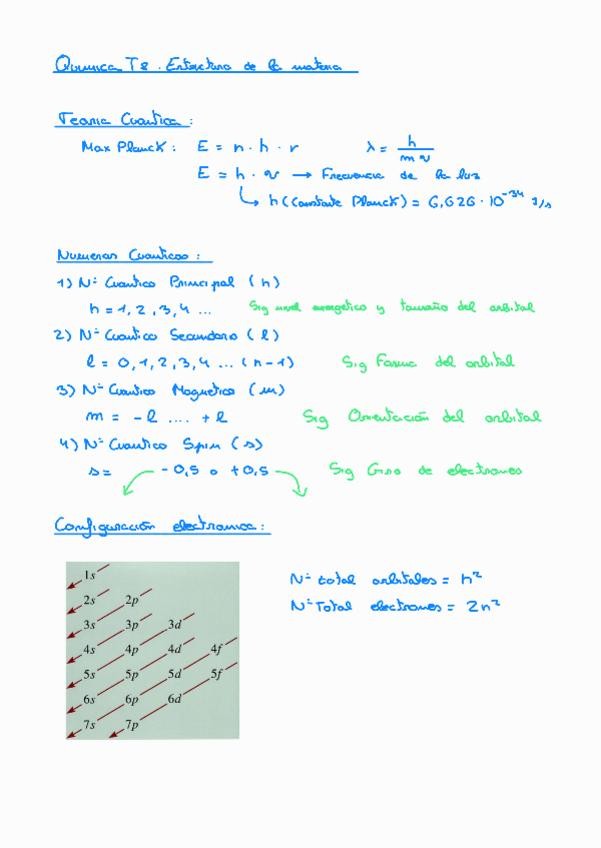 Química T2. Estructura de la materia
Teoria Cuantica:
Max Planck: E = n · h · r λ = h / m v
E = h · v → Frecuencia de la luz
h (Constante Planck) = 6,626 · 10⁻³⁴ J/s
Numeros Cuanticos:
1) Nº Cuantico Principal (n)
n = 1, 2, 3, 4 ... Sig nivel energetico y tamaño del orbital
2) Nº Cuantico Secundario (l)
l = 0, 1, 2, 3, 4 ... (n - 1) Sig Forma del orbital
3) Nº Cuantico Magnetico (m)
m = - l .... + l Sig Orientación del orbital
4) Nº Cuantico Spin (s)
s = - 0,5 o + 0,5 Sig Giro de electrones
Configuración electronica:
1s
2s 2p
3s 3p 3d
4s 4p 4d 4f
5s 5p 5d 5f
6s 6p 6d
7s 7p
Nº total orbitales = n²
Nº Total electrones = 2n²